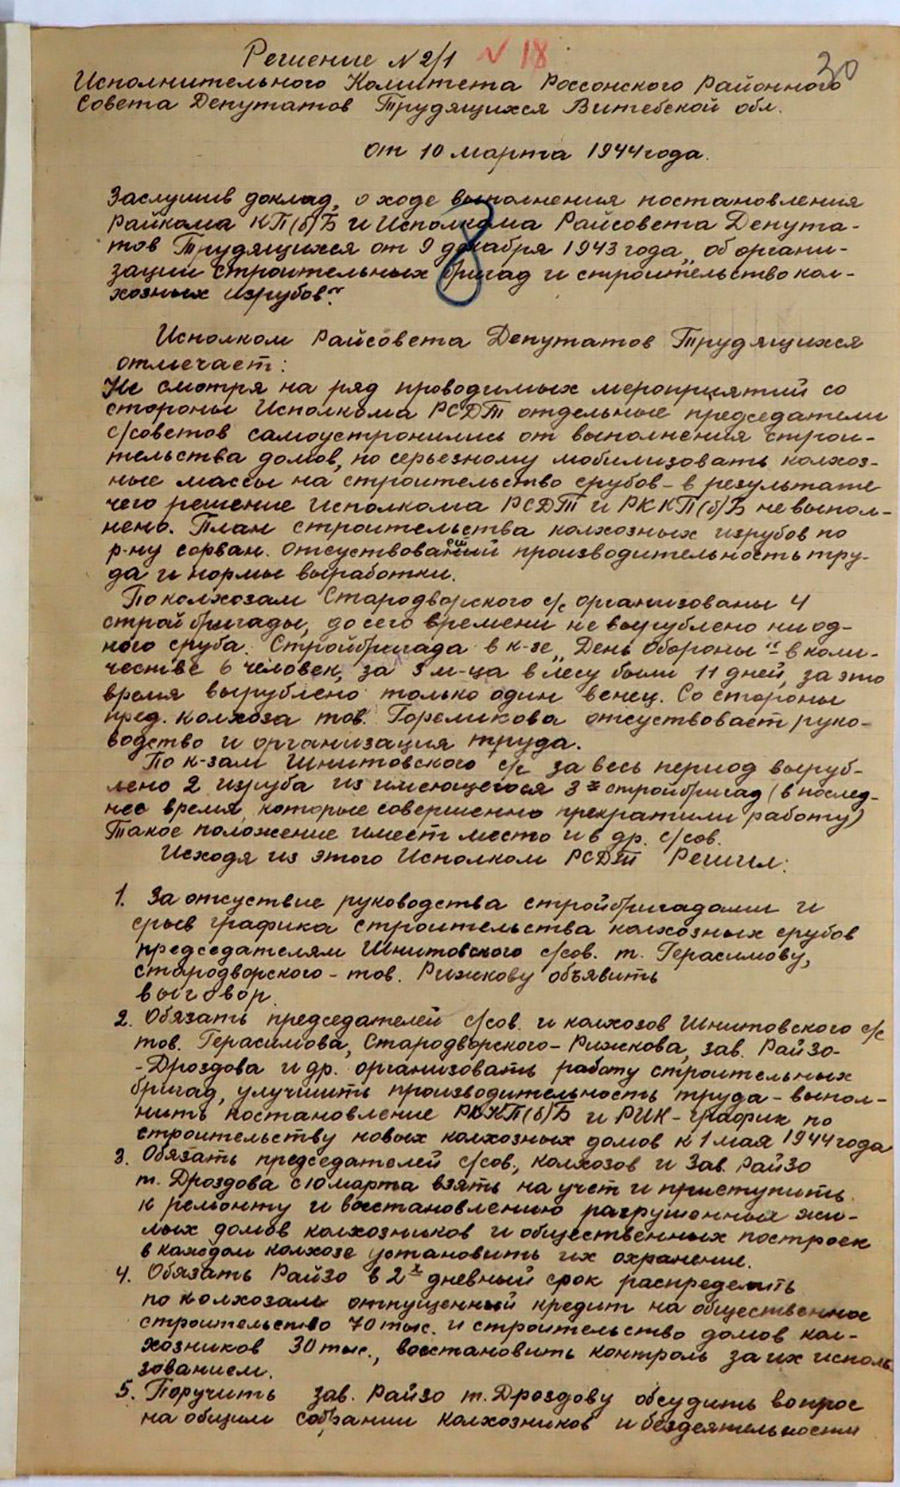 Решение N 2/1 N 18
30
Исполнительного Комитета Россонского Районного
Совета Депутатов Трудящихся Витебской обл.
от 10 марта 1944 года.
Заслушив доклад, о ходе выполнения постановления
Райкома КП(б)Б и Исполкома Райсовета Депута-
тов Трудящихся от 9 декабря 1943 года „об органи-
зации строительных бригад и строительство кол-
хозных изрубов".
8
Исполком Райсовета Депутатов Трудящихся
отмечает:
Не смотря на ряд проводимых мероприятий со
стороны Исполкома РСДТ отдельные председатели
с/советов самоустронились от выполнения строи-
тельства домов, по серьезному мобилизовать колхоз-
ные массы на строительство срубов - в результате
чего решение Исполкома РСДТ и РККП(б)Б не выпол-
нено. План строительства колхозных изрубов по
р-ну сорван. Отсуствовавший производительность тру-
да и нормы выработки.
По колхозам Стародворского с/с организованы 4
строй бригады, до сего времени не вырублено ни од-
ного сруба. Стройбригада в к-зе „День Обороны" в коли-
честве 6 человек, за 3 м-ца в лесу были 11 дней, за это
время вырублено только один венец. Со стороны
пред. колхоза тов. Горемикова отсуствовает руко-
водство и организация труда.
По к-зам Шнитовского с/с за весь период выруб-
лено 2 изруба из имеющегося 3х стройбригад (в послед-
нее время, которые совершенно прекратили работу)
Такое положение имеет место и в др. с/сов.
Исходя из этого Исполком РСДТ Решил:
1. За отсуствие руководства стройбригадами и
срыв графика строительства колхозных срубов
председателям Шнитовского с/сов. т. Герасимову,
стародворского - тов. Рижкову объявить
выговор.
2. Обязать председателей с/сов. и колхозов Шнитовского с/с
тов. Герасимова, Стародворского - Рижкова, зав. Райзо-
- Дроздова и др. организовать работу строительных
бригад, улучшить производительность труда - выпол-
нить постановление РККП(б)Б и РИК - график по
строительству новых колхозных домов к 1 мая 1944 года
3. Обязать председателей с/сов., колхозов и Зав. Райзо
т. Дроздова с 10 марта взять на учет и приступить
к ремонту и восстановлению разрушенных жи-
лых домов колхозников и общественных построек
в каждом колхозе установить их охранение.
4. Обязать Райзо в 2х дневный срок распределить
по колхозам отпущенный кредит на общественное
строительство 70 тыс. и строительство домов кол-
хозников 30 тыс., восстановить контроль за их исполь-
зованием.
5. Поручить зав. Райзо т. Дроздову обсудить вопрос
на общим собрании колхозников и бездеятельности